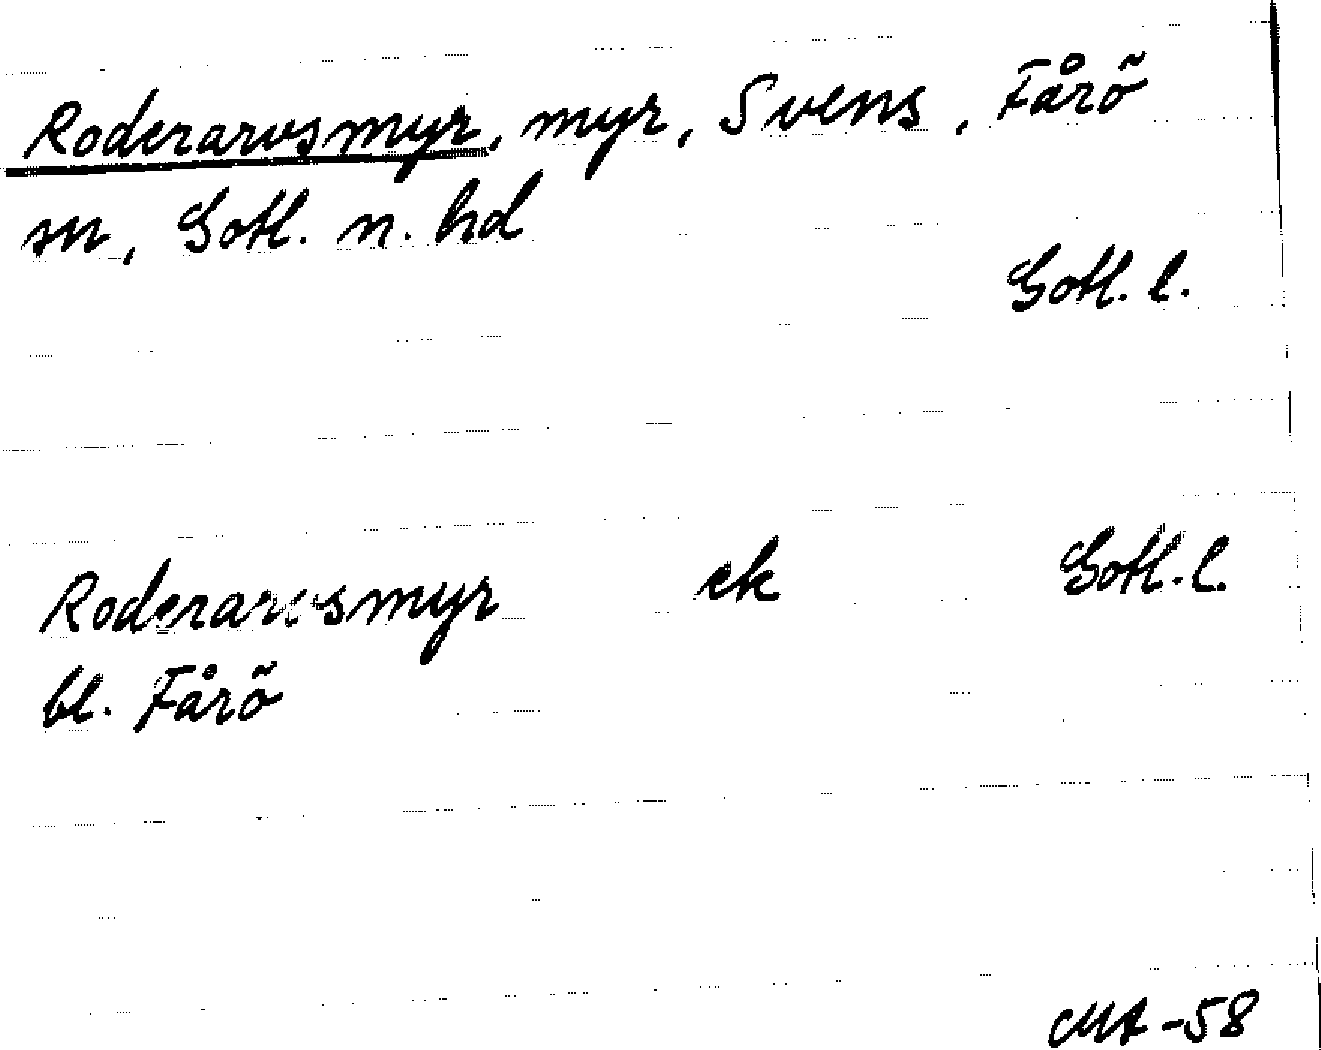 Roderarvsmyr, myr, Svens, Fårö
sn, Gotl. n. hd
Gotl. l.
Roderarvsmyr ek Gotl. l.
bl. Fårö
MA -58